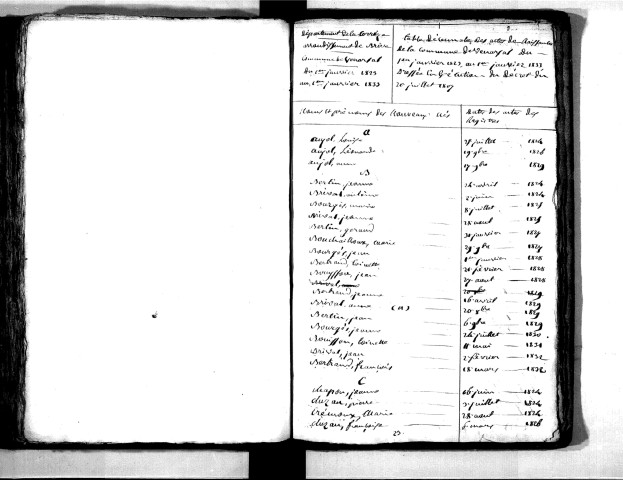 Département de la Corrèze
arrondissement de Brive
Commune de
Du 1er janvier 1823
au 1er janvier 1833
table Décennale des actes de Naissances
de la Commune de du
1er janvier 1823, au 1er janvier 1833
Dressée en Exécution du Décret du
20 juillet 1807
Noms et prénoms des Nouveaux nés
Dates des actes des Registres
a
aujol, Louise 28 juillet 1824
aujol, Léonarde 19 9bre 1828
aujol, anne 17 9bre 1829
B
Bertin, jeanne 24 avril 1824
Brival, antoine 2 juin 1824
Bourgès, marie 8 juillet 1825
Brival, jeanne 28 aout
Bertin, geraud 30 janvier 1827
Bouchailloux, marie 29 9bre 1827
Bourgès, jean 1er janvier 1828
Bertrand, toinette 20 février 1828
Bouyssou, jean 27 aout 1828
Bertrand, jeanne 16 avril 1829
Brival, anne 20 8bre 1829
Bertin, jean 6 9bre 1829
Bourgès, jeanne 24 juillet 1830
Bouisson, toinette 11 mai 1831
Brival, jean 2 février 1832
Bertrand, françois 18 mars 1832
C
chapou, jeanne 16 juin 1824
pierre 3 juillet 1824
marie 28 aout 1824
françoise 6 mars 1826
23